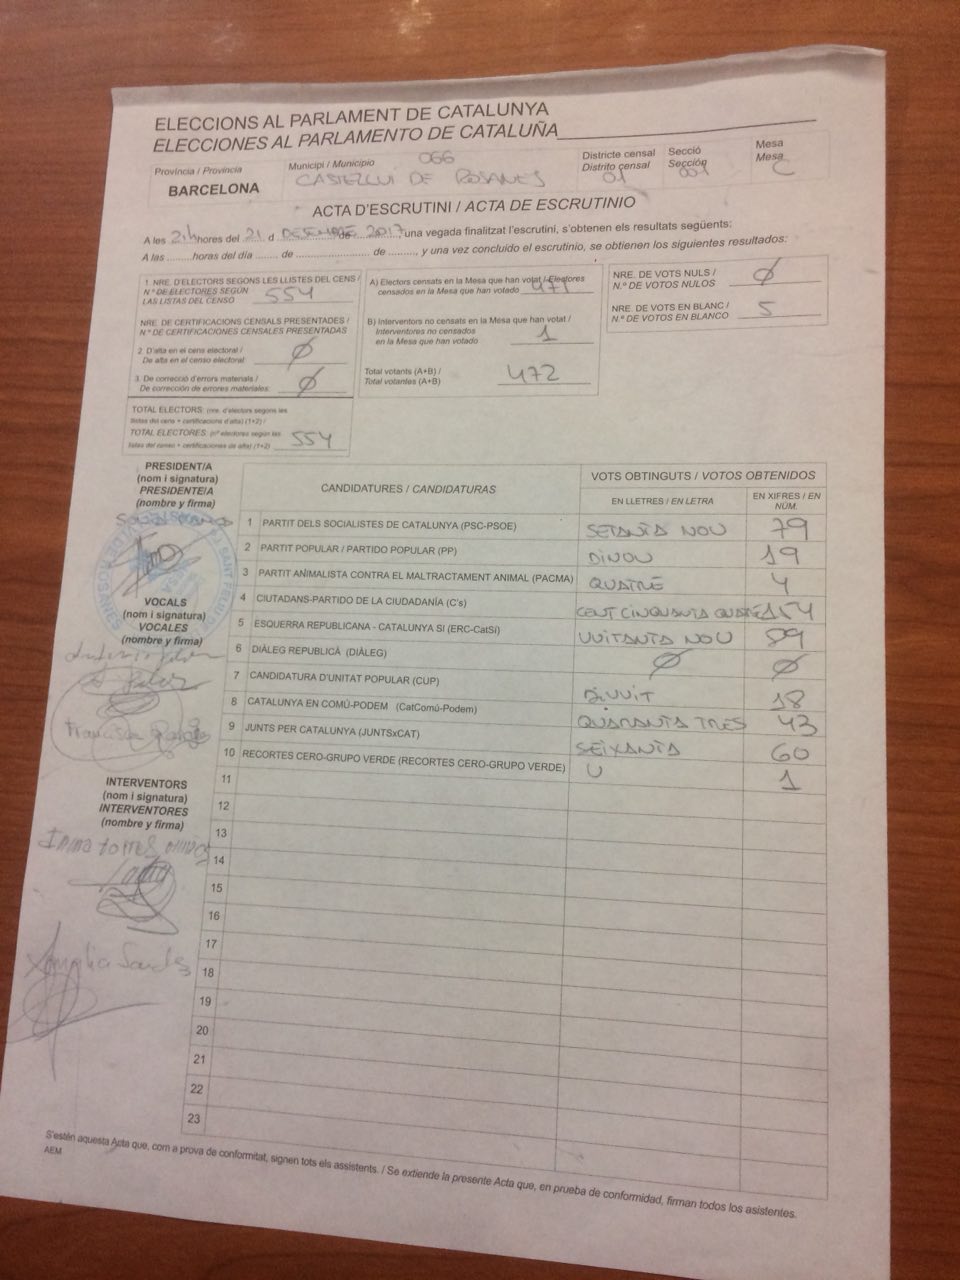 ELECCIONS AL PARLAMENT DE CATALUNYA
ELECCIONES AL PARLAMENTO DE CATALUÑA
Província / Provincia
BARCELONA
Municipi / Municipio 066
CASTELLVÍ DE ROSANES
Districte censal
Distrito censal
01
Secció
Sección
001
Mesa
Mesa
C
ACTA D'ESCRUTINI / ACTA DE ESCRUTINIO
A les 21h hores del 21 d DESEMBRE de 2017 una vegada finalitzat l'escrutini, s'obtenen els resultats següents:
A las ........ horas del día ....... de ................ de ........, y una vez concluido el escrutinio, se obtienen los siguientes resultados:
1. NRE. D'ELECTORS SEGONS LES LLISTES DEL CENS /
N.º DE ELECTORES SEGÚN
LAS LISTAS DEL CENSO 554
NRE. DE CERTIFICACIONS CENSALS PRESENTADES /
N.º DE CERTIFICACIONES CENSALES PRESENTADAS
2. D'alta en el cens electoral /
De alta en el censo electoral Ø
3. De correcció d'errors materials /
De corrección de errores materiales: Ø
TOTAL ELECTORS: (nre. d'electors segons les
llistes del cens + certificacions d'alta) (1+2) /
TOTAL ELECTORES: (nº electores según las
listas del censo + certificaciones de alta) (1+2) 554
A) Electors censats en la Mesa que han votat / Electores
censados en la Mesa que han votado 471
B) Interventors no censats en la Mesa que han votat /
Interventores no censados
en la Mesa que han votado 1
Total votants (A+B) /
Total votantes (A+B) 472
NRE. DE VOTS NULS /
N.º DE VOTOS NULOS Ø
NRE. DE VOTS EN BLANC /
N.º DE VOTOS EN BLANCO 5
PRESIDENT/A
(nom i signatura)
PRESIDENTE/A
(nombre y firma)
VOCALS
(nom i signatura)
VOCALES
(nombre y firma)
INTERVENTORS
(nom i signatura)
INTERVENTORES
(nombre y firma)
CANDIDATURES / CANDIDATURAS
VOTS OBTINGUTS / VOTOS OBTENIDOS
EN LLETRES / EN LETRA
EN XIFRES / EN NÚM.
1 PARTIT DELS SOCIALISTES DE CATALUNYA (PSC-PSOE) SETANTA NOU 79
2 PARTIT POPULAR / PARTIDO POPULAR (PP) DINOU 19
3 PARTIT ANIMALISTA CONTRA EL MALTRACTAMENT ANIMAL (PACMA) QUATRE 4
4 CIUTADANS-PARTIDO DE LA CIUDADANÍA (C's) CENT CINQUANTA QUATRE 154
5 ESQUERRA REPUBLICANA - CATALUNYA SÍ (ERC-CatSí) VUITANTA NOU 89
6 DIÀLEG REPUBLICÀ (DIÀLEG) Ø Ø
7 CANDIDATURA D'UNITAT POPULAR (CUP) DIVUIT 18
8 CATALUNYA EN COMÚ-PODEM (CatComú-Podem) QUARANTA TRES 43
9 JUNTS PER CATALUNYA (JUNTSxCAT) SEIXANTA 60
10 RECORTES CERO-GRUPO VERDE (RECORTES CERO-GRUPO VERDE) U 1
11
12
13
14
15
16
17
18
19
20
21
22
23
S'estén aquesta Acta que, com a prova de conformitat, signen tots els assistents. / Se extiende la presente Acta que, en prueba de conformidad, firman todos los asistentes.
AEM